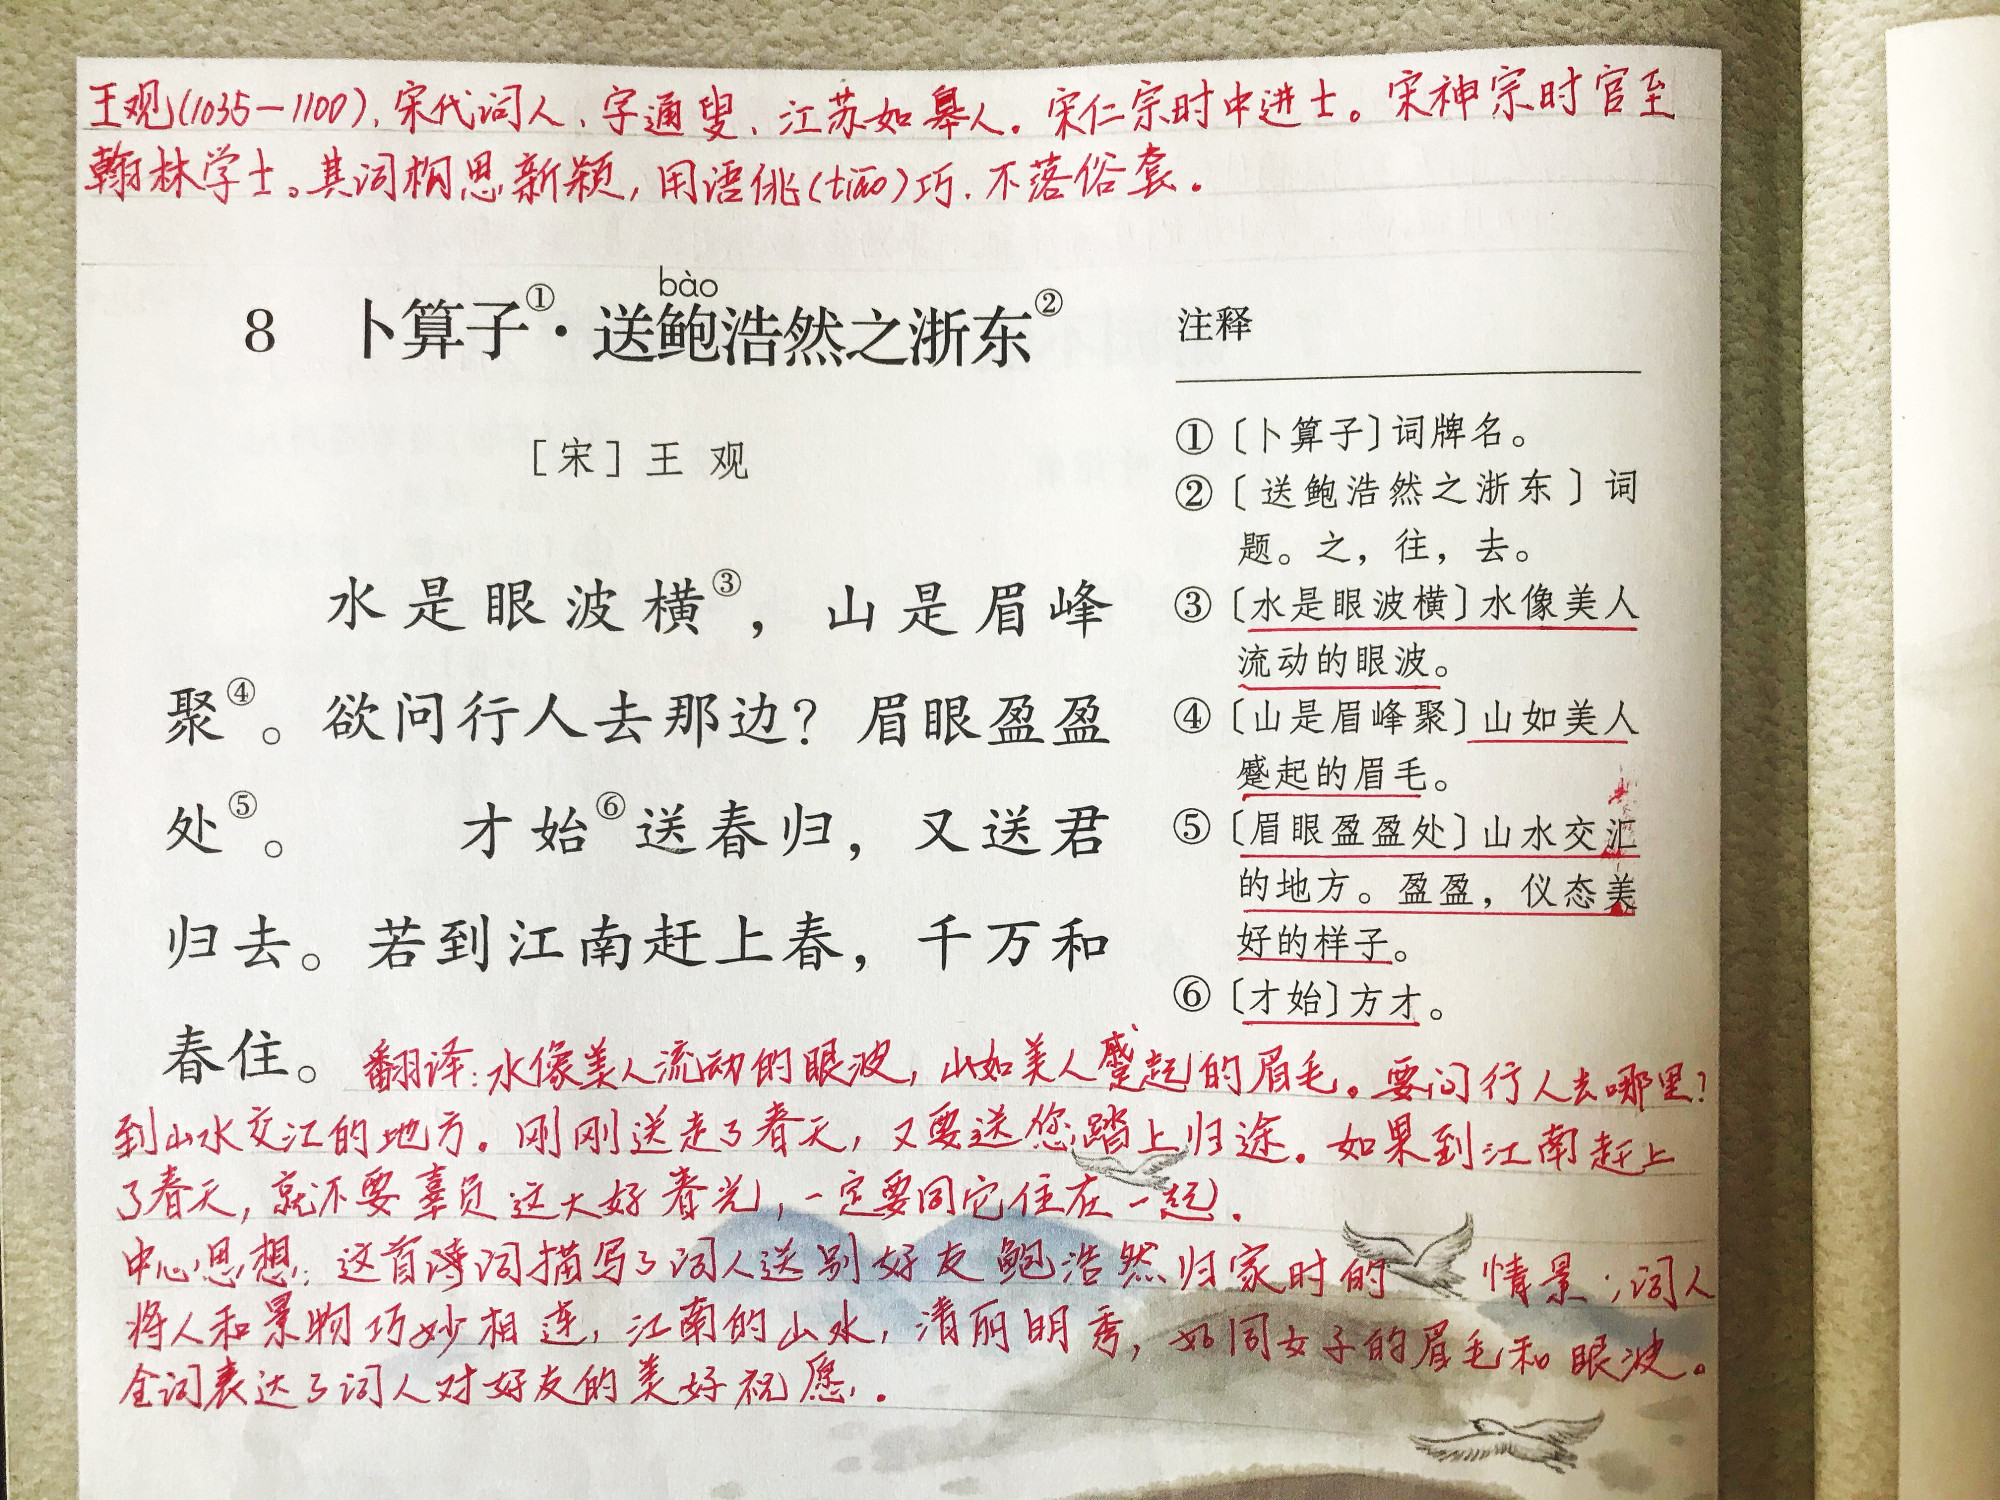 王观(1035—1100),宋代词人、字通叟、江苏如皋人。宋仁宗时中进士。宋神宗时官至
翰林学士。其词构思新颖,用语佻(tiāo)巧.不落俗套。
bào
8 卜算子①·送鲍浩然之浙东②
［宋］王 观
水是眼波横③，山是眉峰
聚④。欲问行人去那边？眉眼盈盈
处⑤。 才始⑥送春归，又送君
归去。若到江南赶上春，千万和
春住。
注释
①〔卜算子〕词牌名。
②〔送鲍浩然之浙东〕词
题。之，往，去。
③〔水是眼波横〕水像美人
流动的眼波。
④〔山是眉峰聚〕山如美人
蹙起的眉毛。
⑤〔眉眼盈盈处〕山水交汇
的地方。盈盈，仪态美
好的样子。
⑥〔才始〕方才。
翻译:水像美人流动的眼波,山如美人蹙起的眉毛。要问行人去哪里?
到山水交江的地方。刚刚送走了春天,又要送您踏上归途。如果到江南赶上
了春天,就不要辜负这大好春光,一定要同它住在一起.
中心思想:这首诗词描写了词人送别好友鲍浩然归家时的情景;词人
将人和景物巧妙相连,江南的山水,清丽明秀,如同女子的眉毛和眼波。
全词表达了词人对好友的美好祝愿.